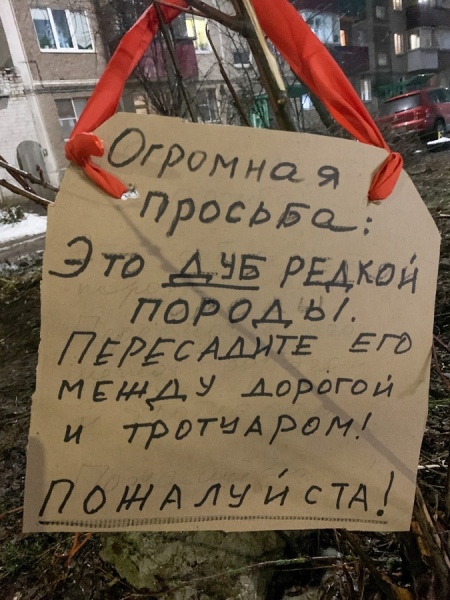 Огромная
просьба:
Это дуб редкой
породы.
Пересадите его
между дорогой
и тротуаром!
Пожалуйста!